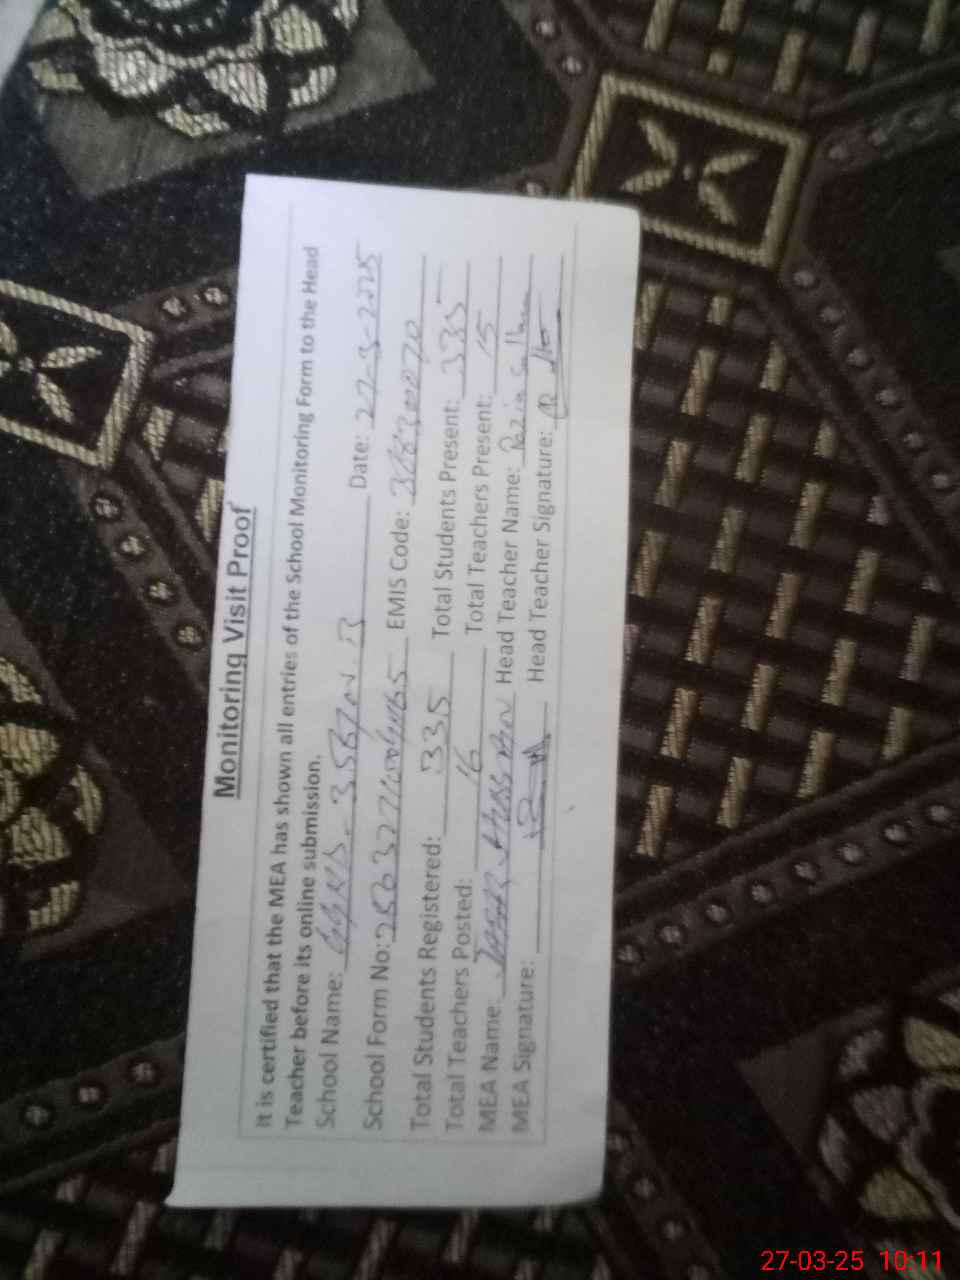 Monitoring Visit Proof
It is certified that the MEA has shown all entries of the School Monitoring Form to the Head
Teacher before its online submission.
School Name: Date: 27-3-2025
School Form No: EMIS Code:
Total Students Registered: 335 Total Students Present: 335
Total Teachers Posted: 16 Total Teachers Present: 15
MEA Name: Head Teacher Name: Razia
MEA Signature: Head Teacher Signature:
27-03-25 10:11